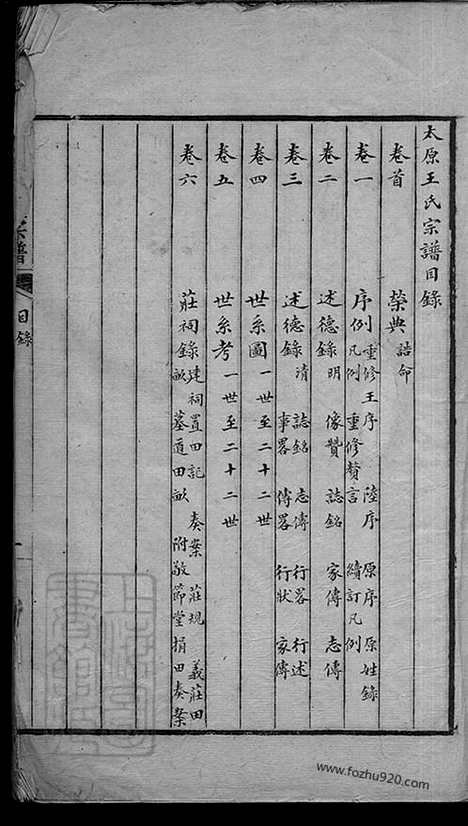 太原王氏宗譜目錄
卷首 榮典 誥命
卷一 序例 重修王序 陸序 原序 原姓錄
凡例 重修贅言 續訂凡例
卷二 述德錄 明 像贊 誌銘 家傳 志傳
卷三 述德錄 清 誌銘 志傳 行畧 行述
事畧 傳畧 行狀 家傳
卷四 世系圖 一世至二十二世
卷五 世系考 一世至二十二世
卷六 莊祠錄 建祠置田記 奏案 莊規 義莊田
畝 墓道田畝 附敬節堂捐田奏案
宗譜
目錄
一
www.fozhu920.com